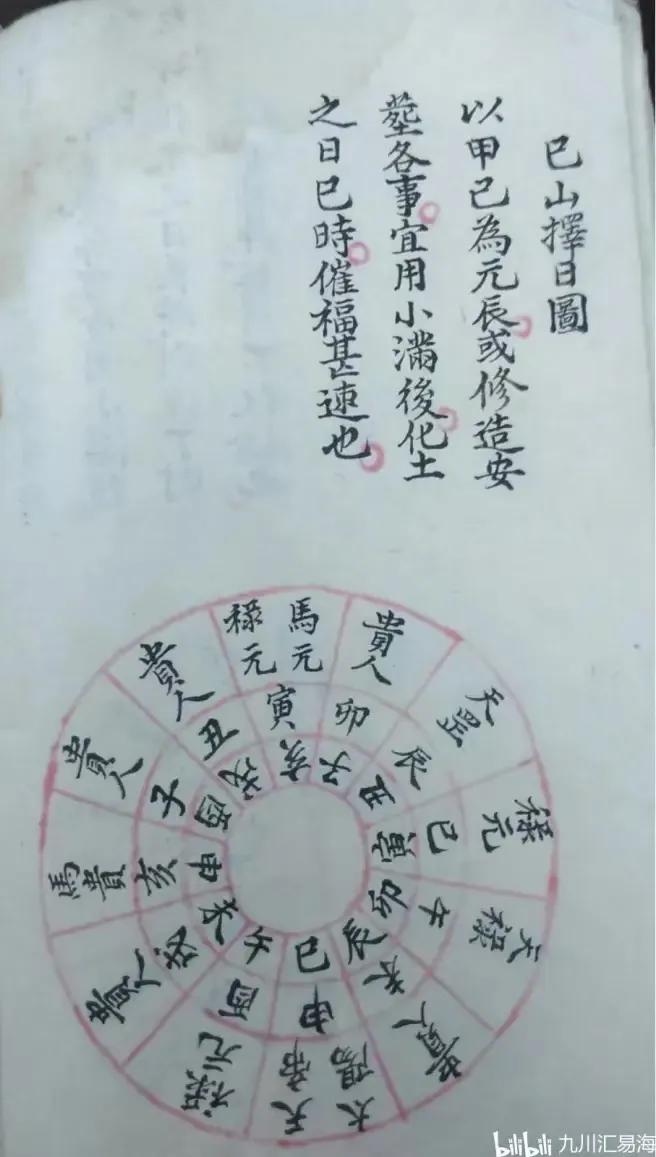 巳山擇日圖
以甲己為元辰或修造安
塟各事宜用小滿後化土
之日巳時催福甚速也
馬元
祿元
貴人
天罡
祿元
天祿
貴人
太陽
天帝
祿元
貴人
馬貴
貴人
貴人
寅
卯
辰
巳
午
未
申
酉
戌
亥
子
丑
亥
子
丑
寅
卯
辰
巳
午
未
申
酉
戌
bilibili 九川汇易海